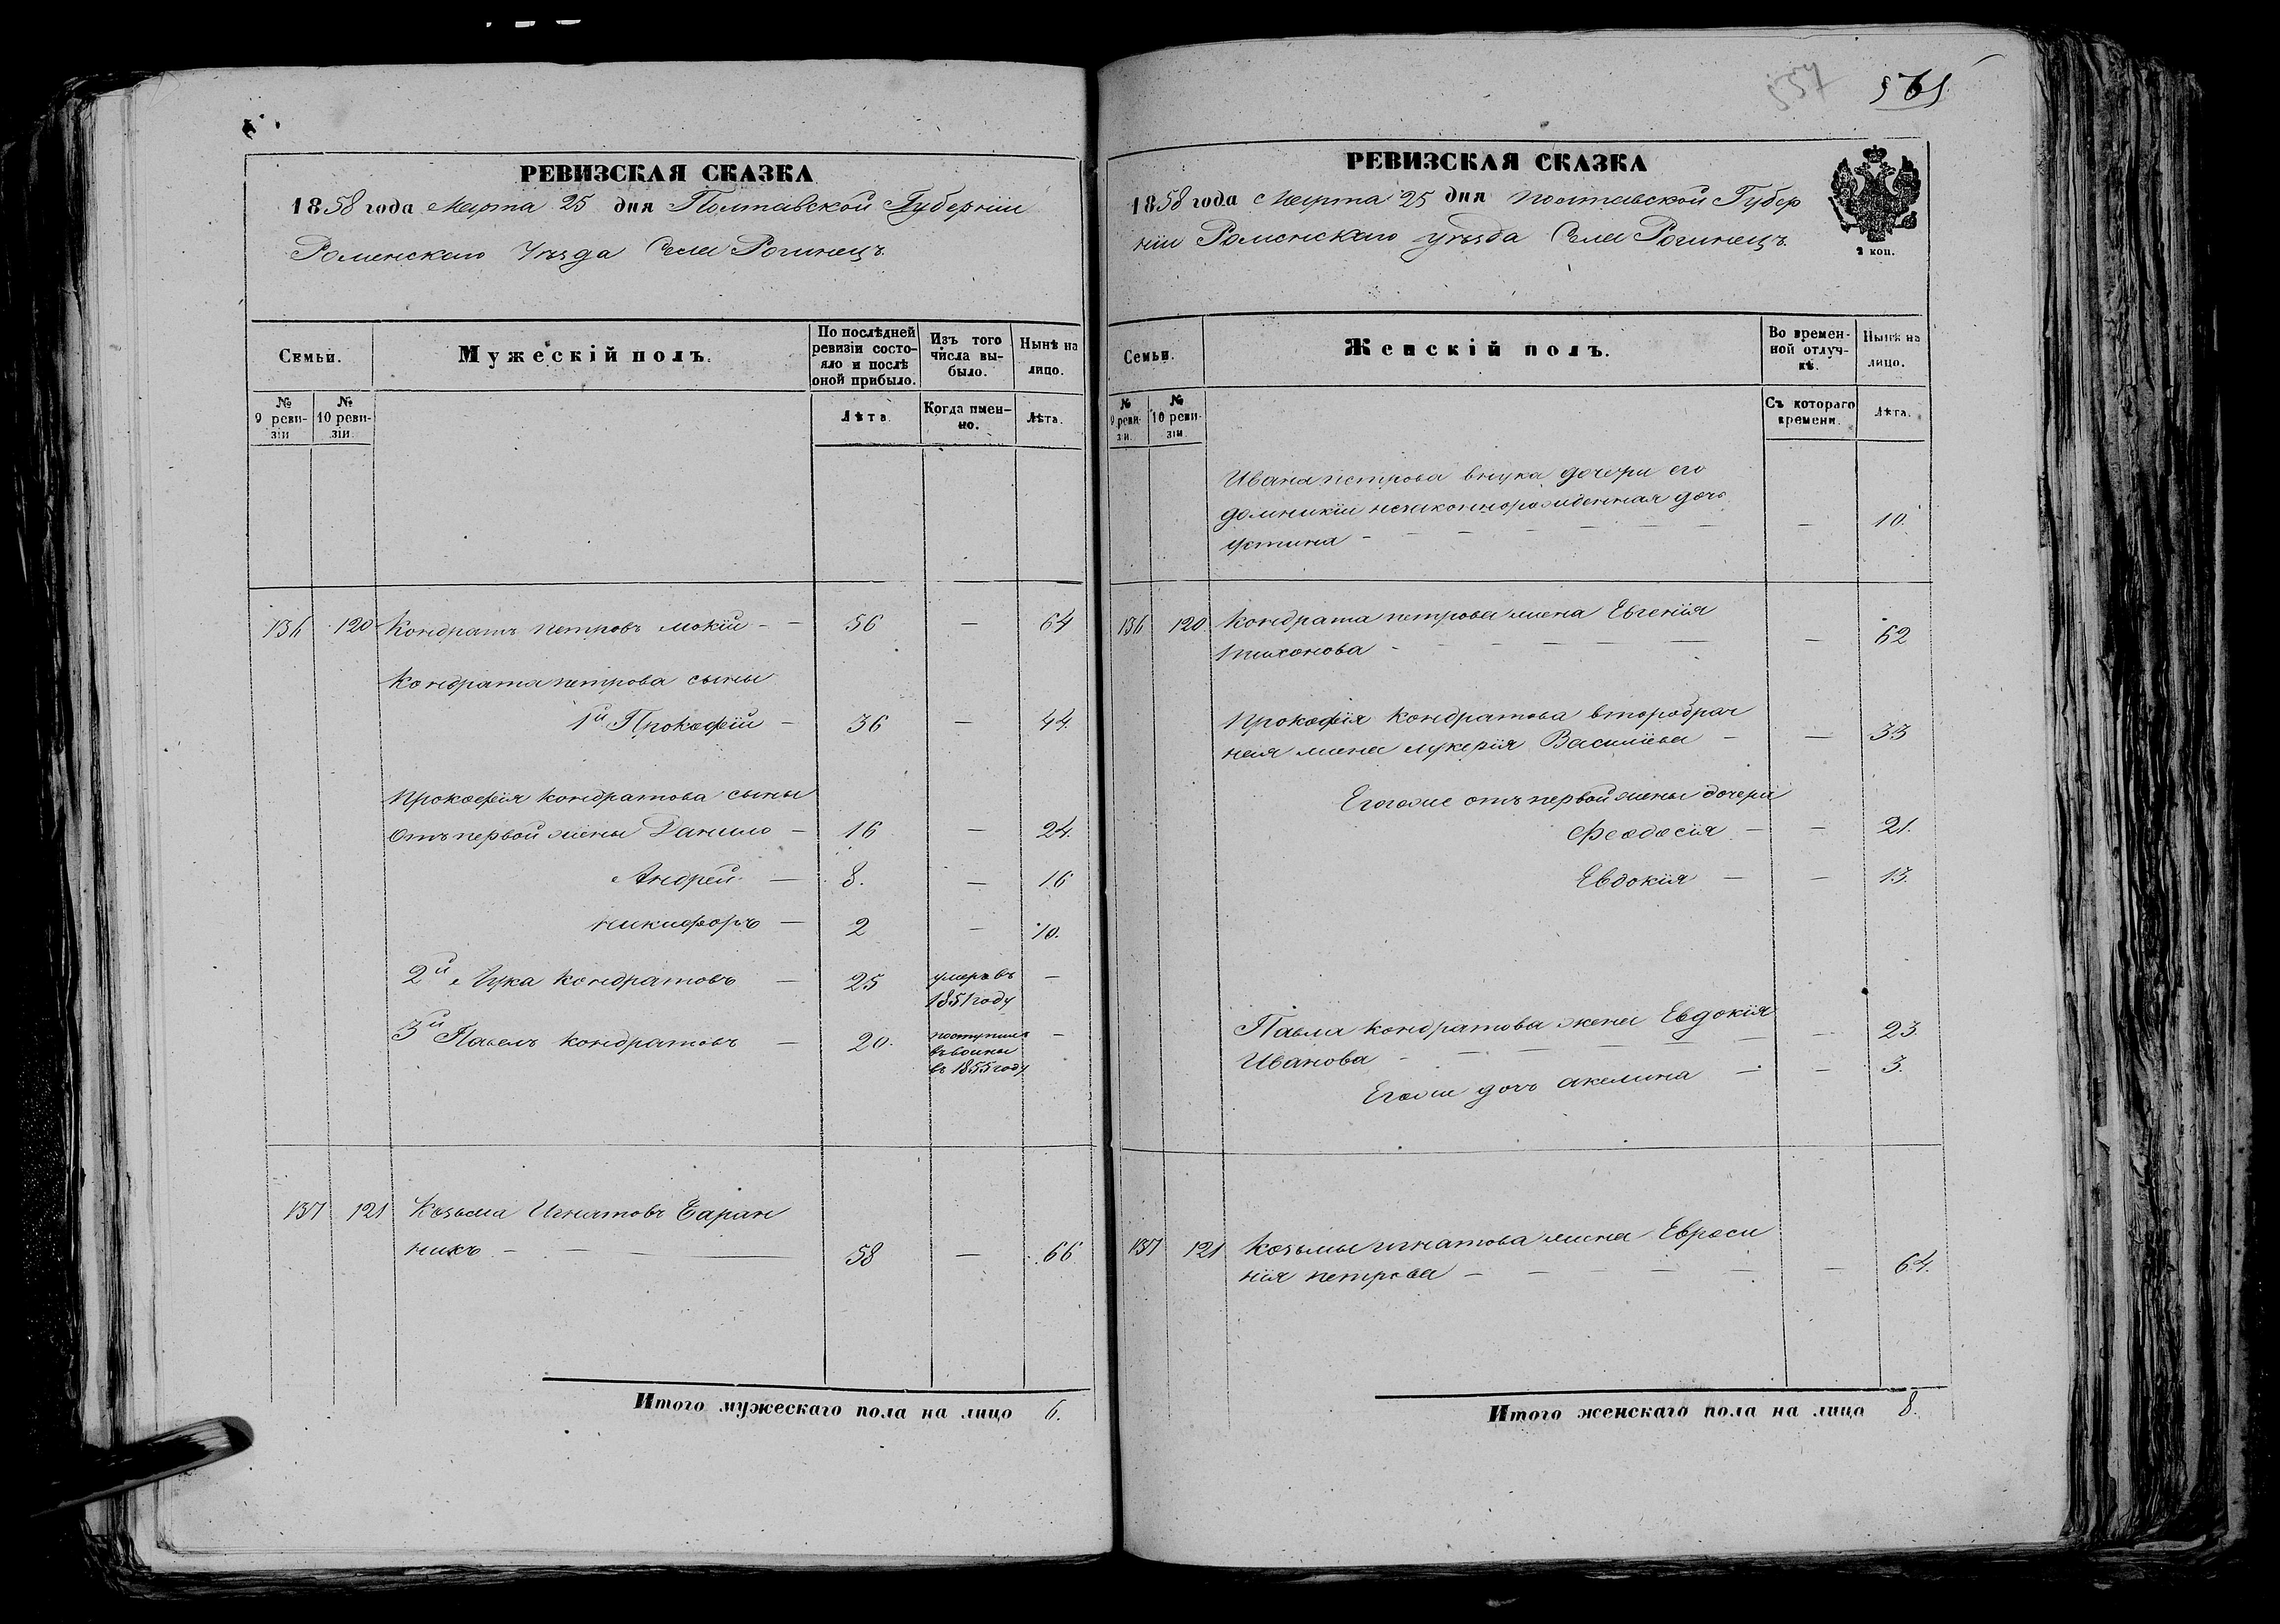 РЕВИЗСКАЯ СКАЗКА
1858 года Марта 25 дня Полтавской Губернии
Роменскаго Уезда Села Рогинецъ.
Семьи.
Мужескій полъ.
По послѣдней
ревизіи состо-
яло и послѣ
оной прибыло.
Изъ того
числа вы-
было.
Нынѣ на
лицо.
№
9 реви-
зіи
№
10 реви-
зіи.
Лѣта.
Когда имен-
но.
Лѣта.
136 120 Кондратъ петровъ мокій - - 56 — 64
Кондрата петрова сыны
1й Прокофій - 36 — 44.
Прокофія кондратова сыны
Отъ первой жены Данило - 16 — 24.
Андрей. — 8. — 16
никифоръ — 2 — 10.
2й Лука кондратовъ — 25 умеръ въ —
1851 году
3й Павелъ кондратовъ — 20. поступилъ —
въ воины
въ 1855 году
137 121 Козьма Игнатовъ Баран
никъ - — — — 58 — 66
Итого мужескаго пола на лицо 6.
557 561
РЕВИЗСКАЯ СКАЗКА
1858 года Марта 25 дня полтавской Губер
ніи Роменскаго уезда Села Рогинецъ.
2 коп.
Семьи.
Женскій полъ.
Во времен-
ной отлуч-
кѣ.
Нынѣ на
лицо.
№
9 реви-
зіи.
№
10 реви-
зіи.
Съ котораго
времени.
Лѣта.
Ивана петрова внука дочери его
домникіи незаконнорожденная дочь
Устина - — — — — — 10.
136 120. Кондрата петрова жена Евгенія
тихонова - — — — — 62
Прокофія кондратова второбрач
ная жена лукерія Василіева — — 33
Егоже отъ первой жены дочери
Феодосія — — 21.
Евдокія — — 13.
Павла кондратова жена Евдокія
Иванова - — — — — 23.
Егоже дочь акелина — — 3.
137 121 Козьмы игнатова жена Евроси
нія петрова — — — — — 64.
Итого женскаго пола на лицо 8.